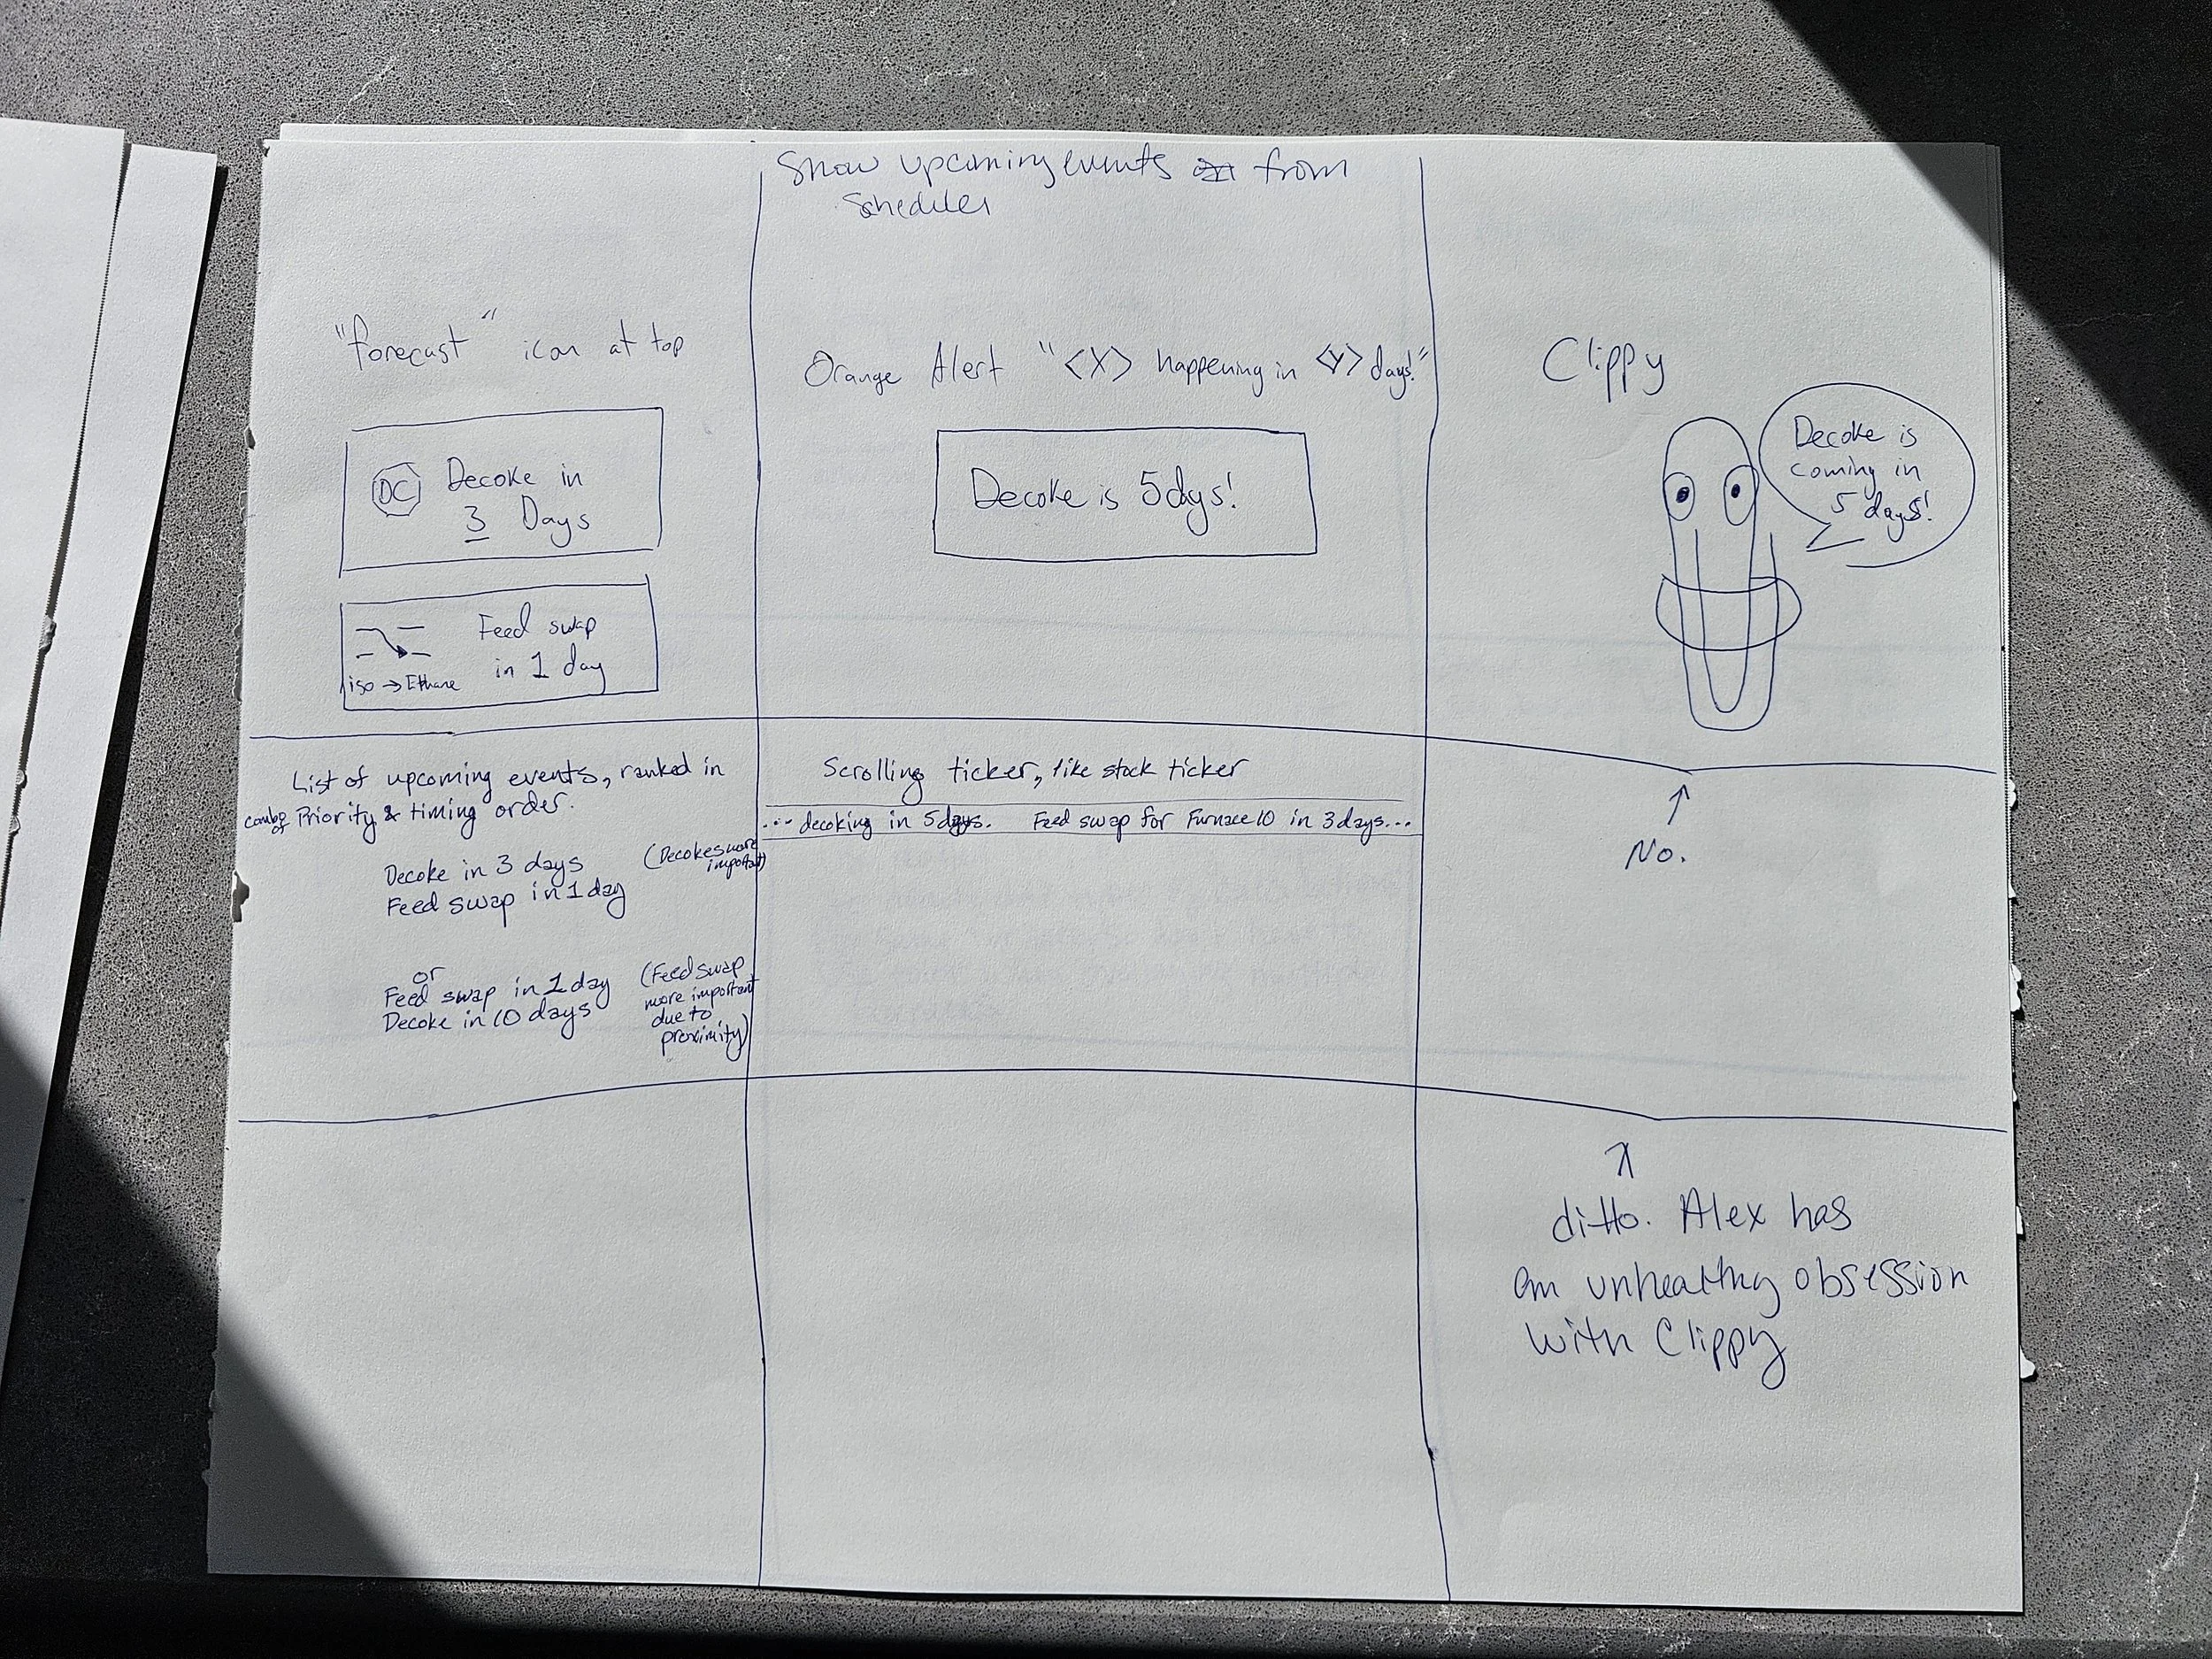 Show upcoming events from
Scheduler
"forecast" icon at top
DC
Decoke in
3 Days
Feed swap
in 1 day
iso → Ethane
Orange Alert "<X> happening in <Y> days!"
Decoke is 5 dys!
Clippy
Decoke is
coming in
5 days!
List of upcoming events, ranked in
combo of Priority & timing order.
Decoke in 3 days
Feed swap in 1 day
(Decokes more
important)
or
Feed swap in 1 day
Decoke in 10 days
(Feed swap
more important
due to
proximity)
Scrolling ticker, like stock ticker
... decoking in 5 days. Feed swap for Furnace 10 in 3 days...
↑
No.
↑
ditto. Alex has
an unhealthy obsession
with Clippy